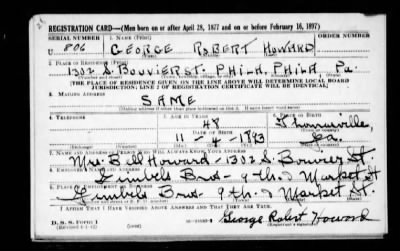 REGISTRATION CARD—(Men born on or after April 28, 1877 and on or before February 16, 1897)
SERIAL NUMBER 1. NAME (Print) ORDER NUMBER
U 806 GEORGE ROBERT HOWARD
2. PLACE OF RESIDENCE (Print)
1302 S. BOUVIER ST. PHILA. PHILA Pa.
[THE PLACE OF RESIDENCE GIVEN ON THE LINE ABOVE WILL DETERMINE LOCAL BOARD
JURISDICTION; LINE 2 OF REGISTRATION CERTIFICATE WILL BE IDENTICAL]
3. MAILING ADDRESS
SAME
4. TELEPHONE 5. AGE IN YEARS 6. PLACE OF BIRTH
48 Thomasville,
DATE OF BIRTH
11 4 1893 Ga.
7. NAME AND ADDRESS OF PERSON WHO WILL ALWAYS KNOW YOUR ADDRESS
Mrs. Bell Howard - 1302 S. Bouvier St.
Gimbels Bros - 9th & Market St
Gimbels Bros - 9th & Market St.
I AFFIRM THAT I HAVE VERIFIED ABOVE ANSWERS AND THAT THEY ARE TRUE.
D. S. S. Form 1
George Robert Howard